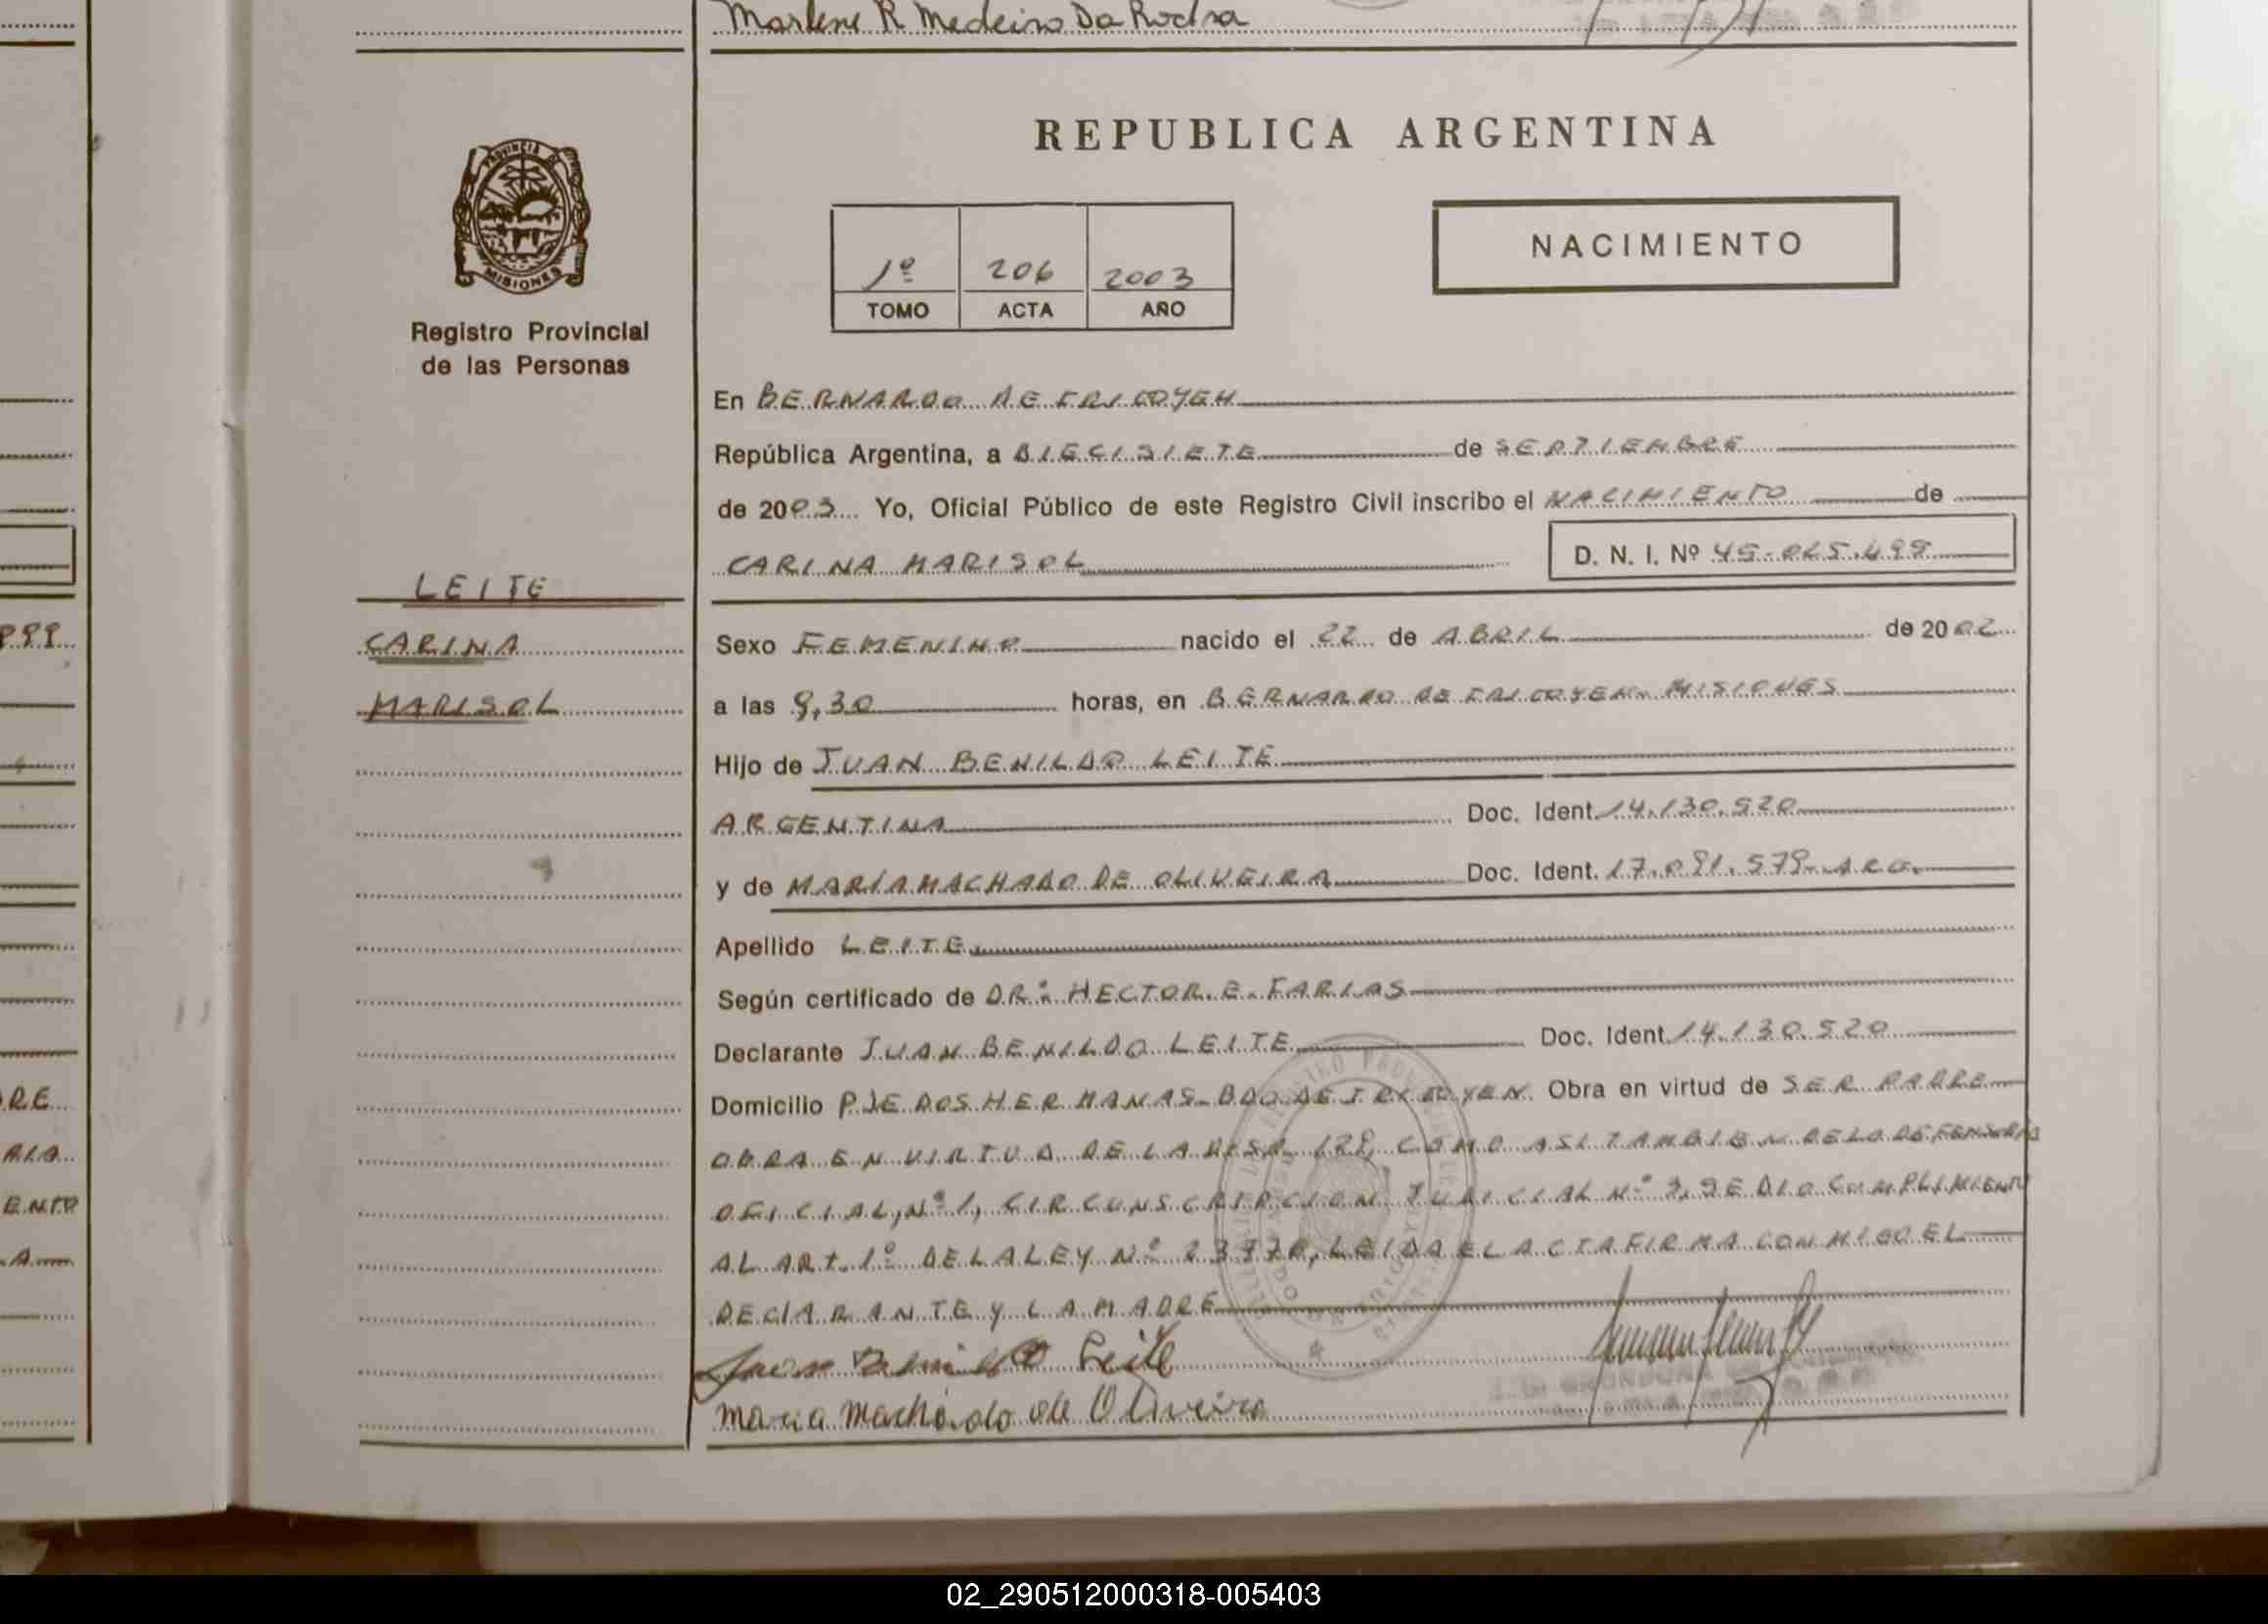 Marlene R Medeiro Da Rocha
PROVINCIA DE
MISIONES
Registro Provincial
de las Personas
REPUBLICA ARGENTINA
1º 206 2003
TOMO ACTA AÑO
NACIMIENTO
En BERNARDO DE IRIGOYEN
República Argentina, a DIECISIETE de SEPTIEMBRE
de 2003 Yo, Oficial Público de este Registro Civil inscribo el NACIMIENTO de
CARINA MARISOL D. N. I. Nº 45.025.499
LEITE
CARINA
MARISOL
Sexo FEMENINO nacido el 22 de ABRIL de 2002
a las 9,30 horas, en BERNARDO DE IRIGOYEN. MISIONES
Hijo de JUAN BENILDO LEITE
ARGENTINA Doc. Ident. 14.130.520
y de MARÍA MACHADO DE OLIVEIRA Doc. Ident. 17.091.579- ARG.
Apellido LEITE
Según certificado de DR: HECTOR. E. FARIAS
Declarante JUAN BENILDO LEITE Doc. Ident. 14.130.520
Domicilio PJE DOS HERMANAS- BDO DE IRIGOYEN. Obra en virtud de SER PADRE
OBRA EN VIRTUD DE LA DISP. COMO ASI TAMBIEN DE LA DEFENSORIA
OFICIAL, Nº 1, CIRCUNSCRIPCION JUDICIAL Nº 3, SE DIO CUMPLIMIENTO
AL ART. 1º DE LA LEY Nº LEIDA EL ACTA FIRMA CONMIGO EL
DECLARANTE Y LA MADRE
Juan Benildo Leite
Maria Machado de Oliveira
PPP
DRE
RIA
ENTO
A
02_290512000318-005403